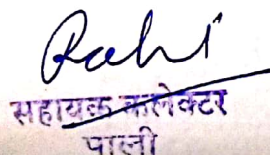 Rahi
सहायक कलेक्टर
पाली